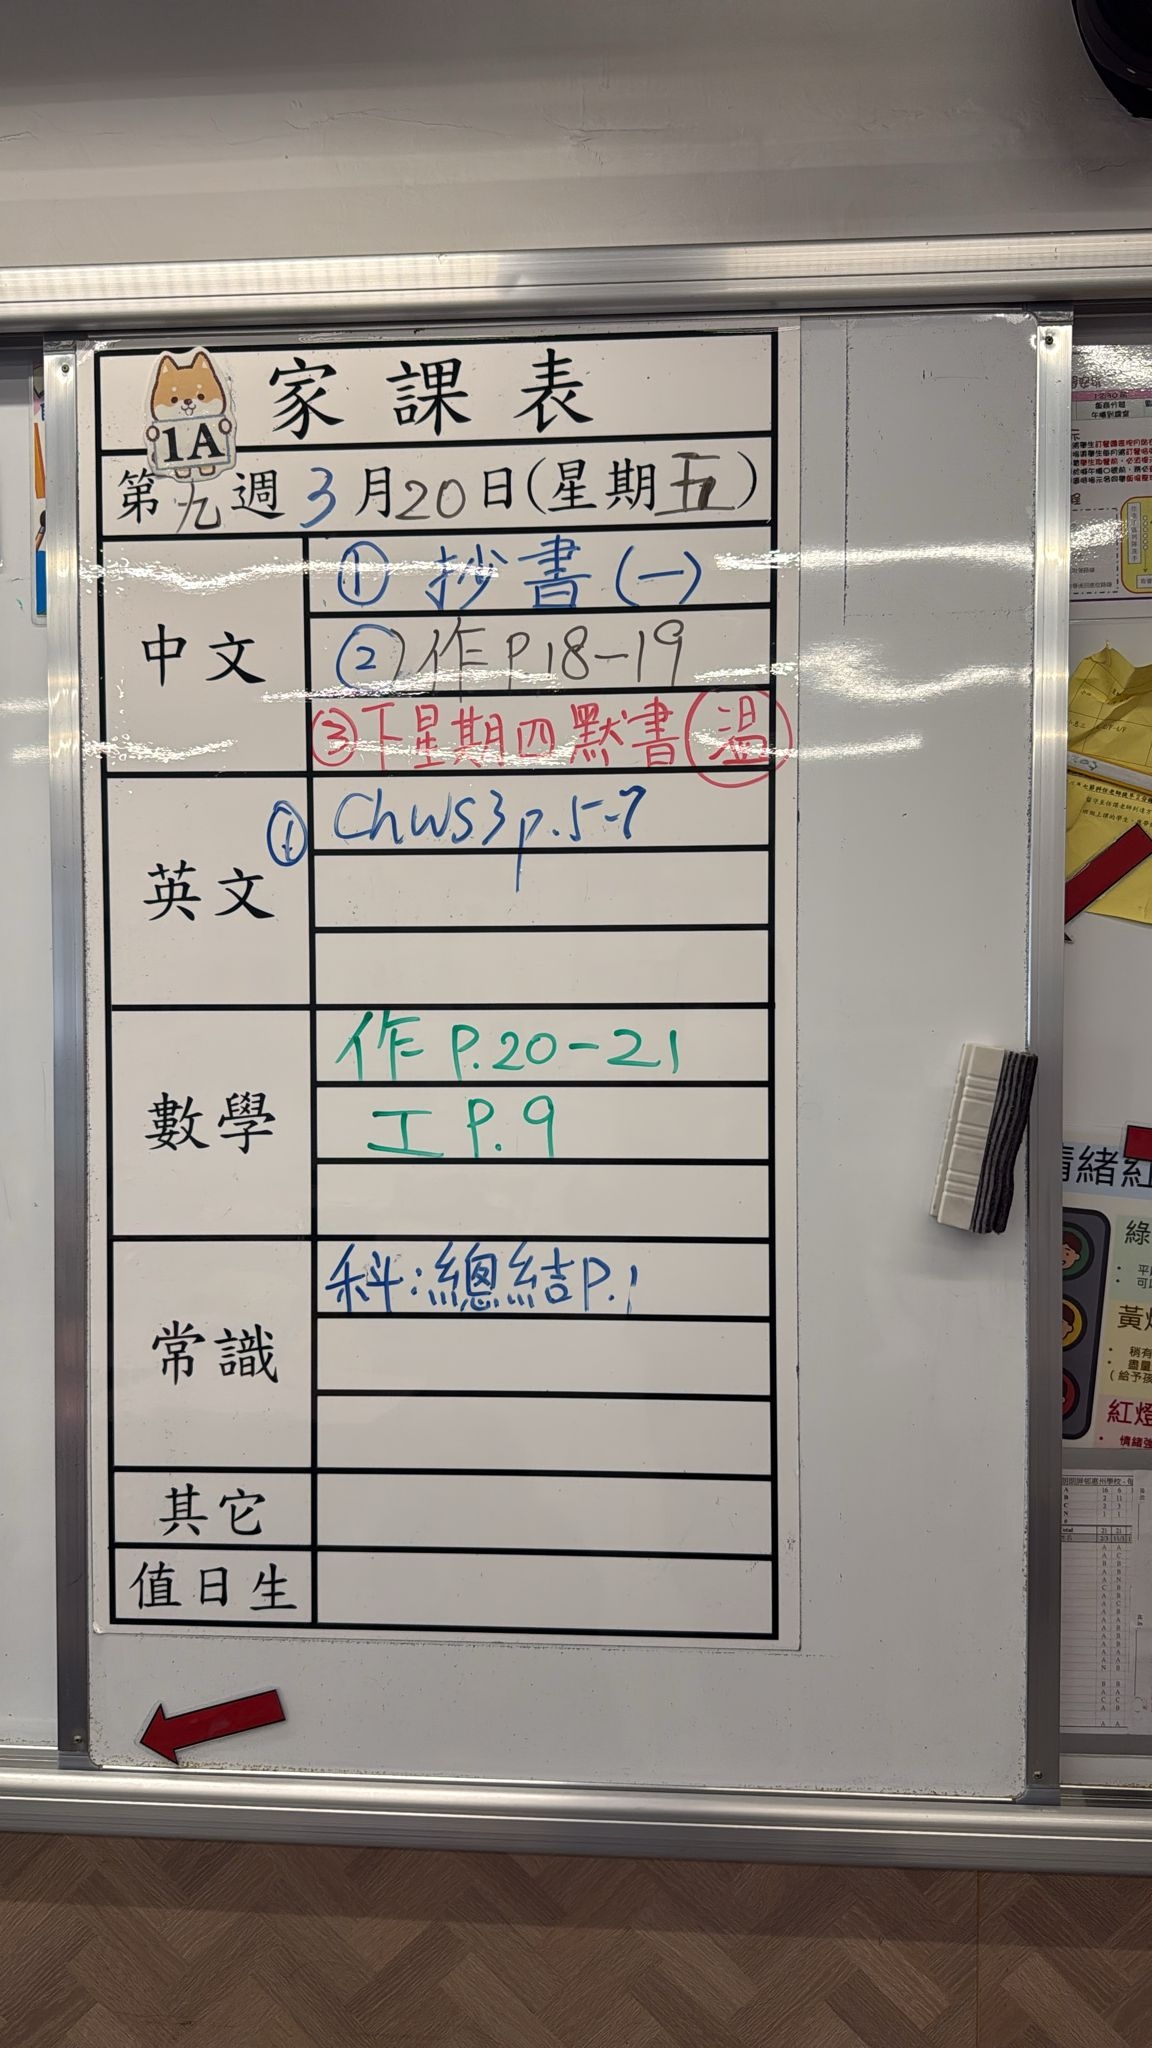 家課表
1A
第九週 3月20日(星期五)
中文
① 抄書(一)
② 作P.18-19
③下星期四默書(溫)
英文
① ChWS3 p.5-7
數學
作 P.20-21
工 P.9
常識
科:總結P.1
其它
值日生
情緒紅
綠
黃燈
紅燈